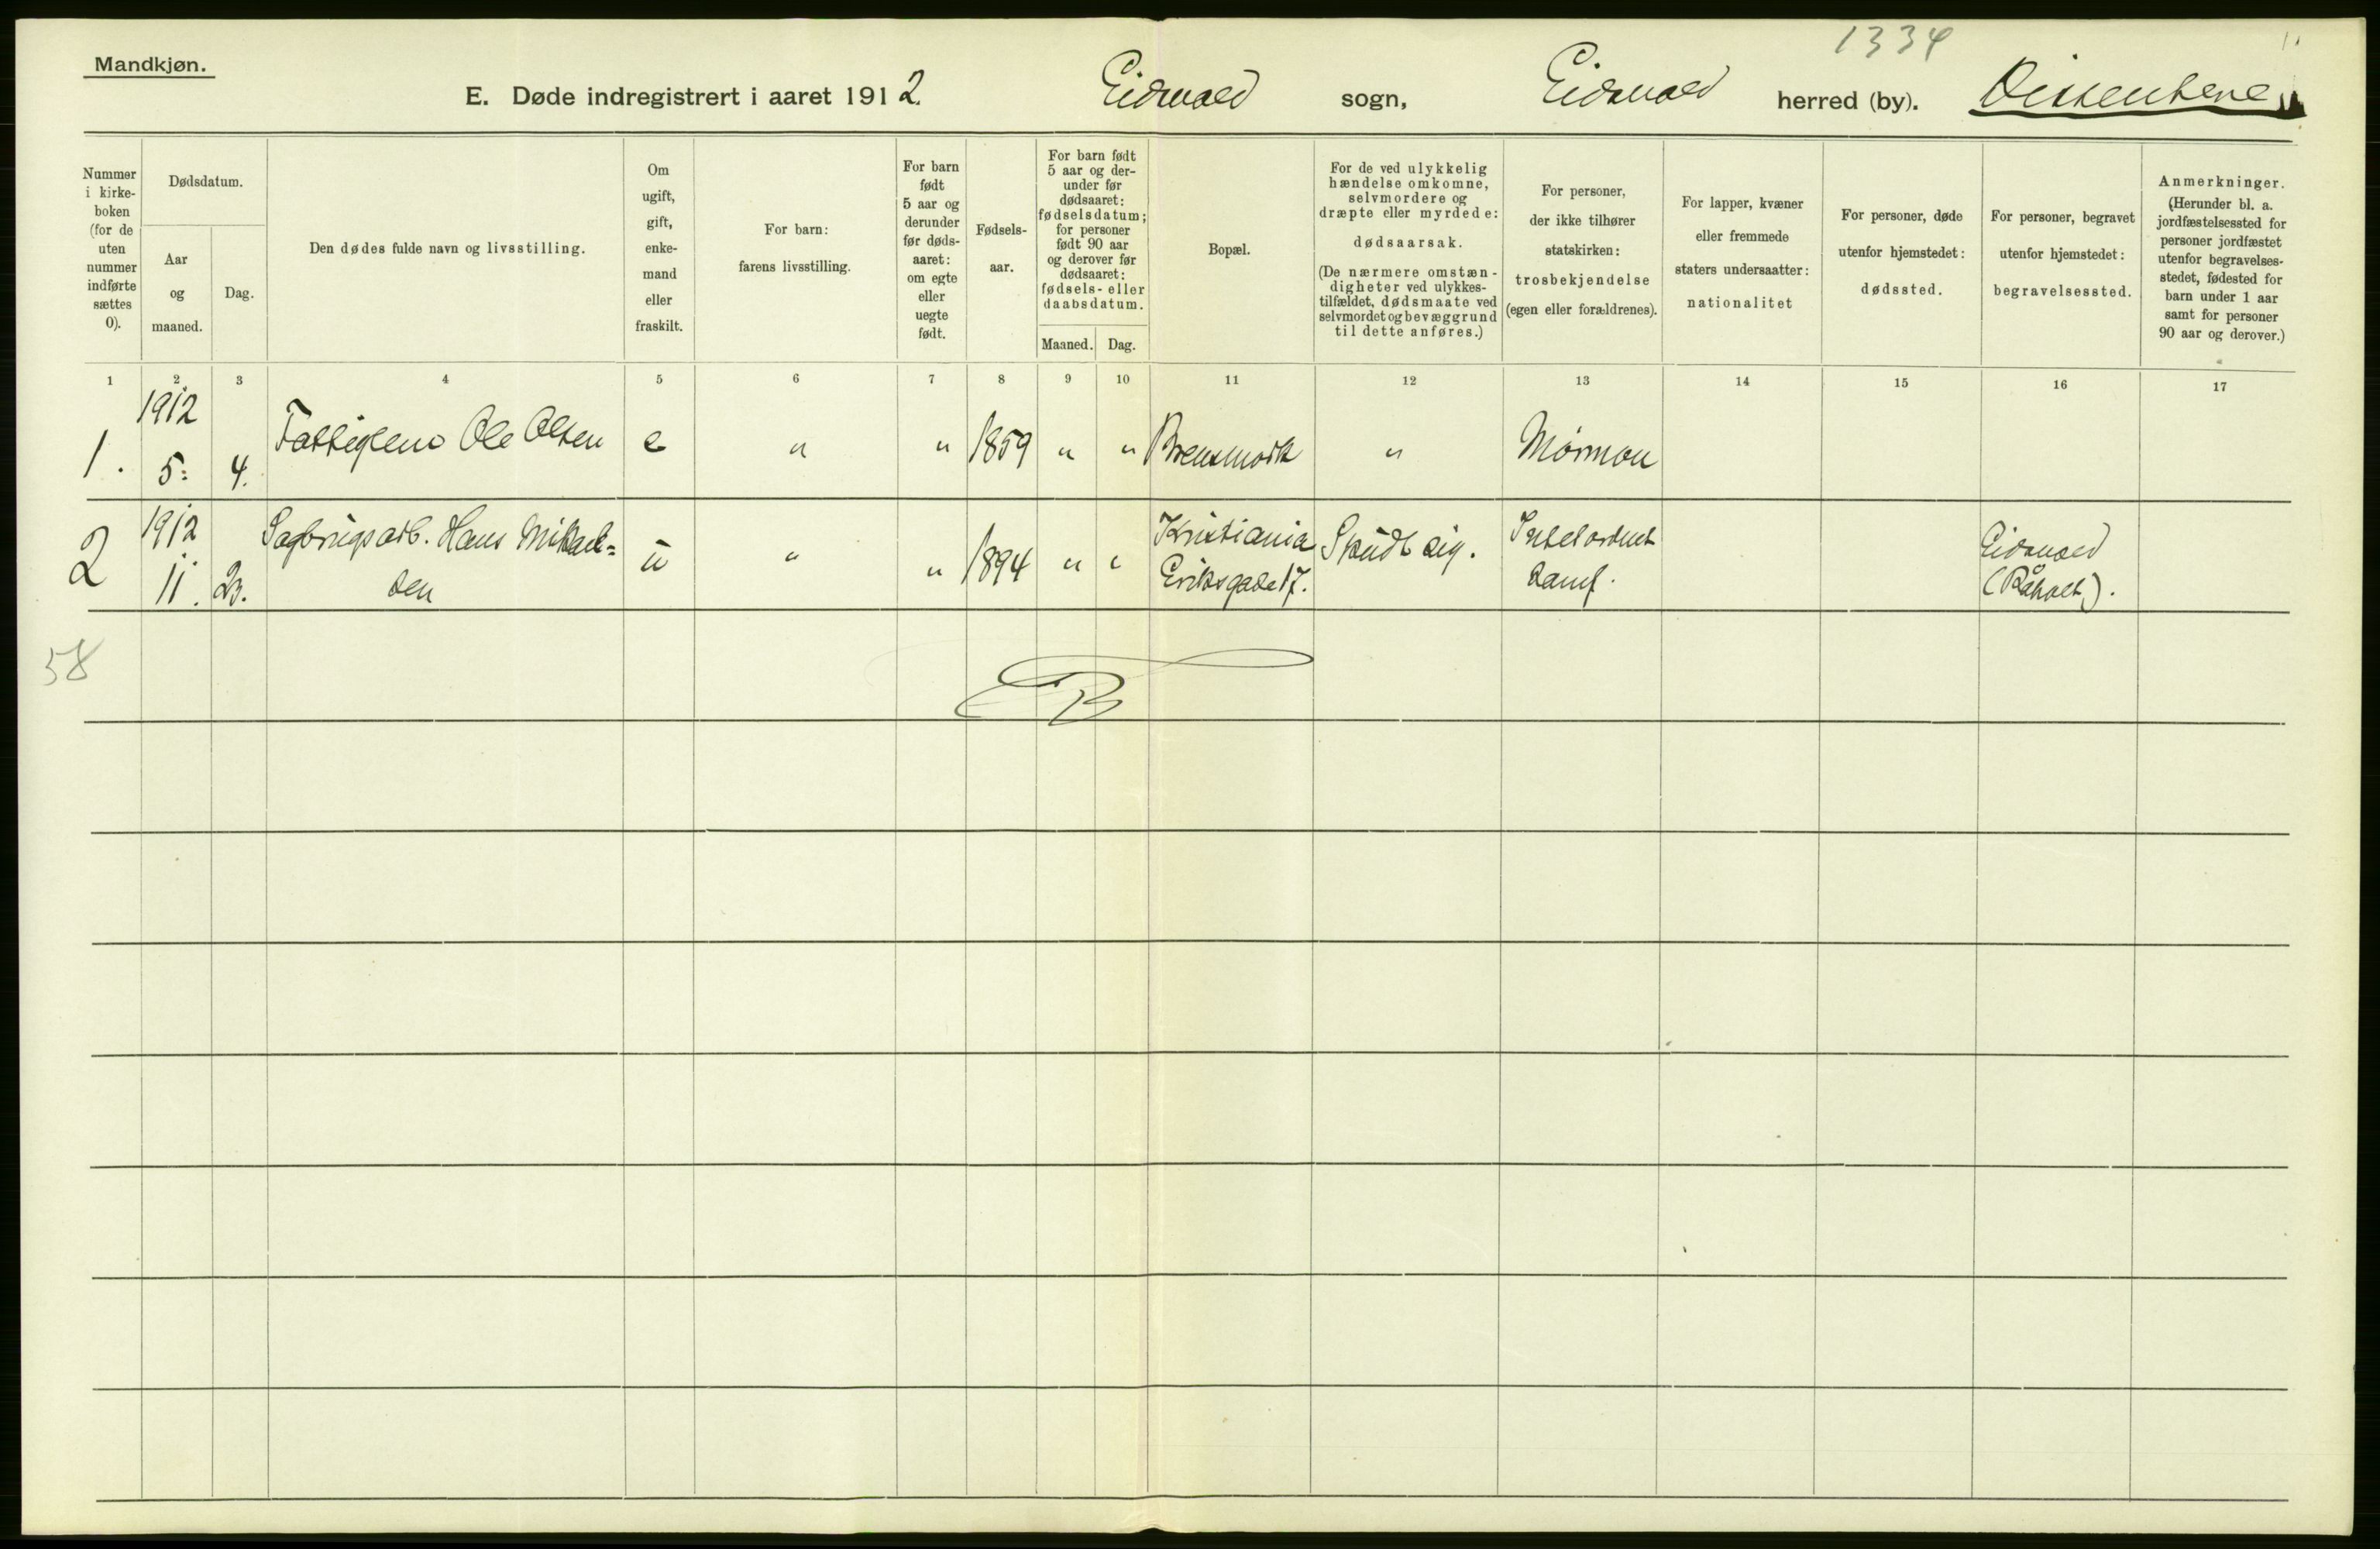 1334
Mandkjøn.
E. Døde indregistrert i aaret 1912. Eidsvold sogn, Eidsvold herred (by). Dissentere
Nummer i kirke-boken (for de uten nummer indførte sættes 0).
Dødsdatum.
Aar og maaned.
Dag.
Den dødes fulde navn og livsstilling.
Om ugift, gift, enke-mand eller fraskilt.
For barn: farens livsstilling.
For barn født 5 aar og derunder før døds-aaret: om egte eller uegte født.
Fødsels-aar.
For barn født 5 aar og der-under før dødsaaret: fødselsdatum; for personer født 90 aar og derover før dødsaaret: fødsels- eller daabsdatum.
Maaned. Dag.
Bopæl.
For de ved ulykkelig hændelse omkomne, selvmordere og dræpte eller myrdede: dødsaarsak. (De nærmere omstæn-digheter ved ulykkes-tilfældet, dødsmaate ved selvmordet og bevæggrund til dette anføres.)
For personer, der ikke tilhører statskirken: trosbekjendelse (egen eller forældrenes).
For lapper, kvæner eller fremmede staters undersaatter: nationalitet
For personer, døde utenfor hjemstedet: dødssted.
For personer, begravet utenfor hjemstedet: begravelsessted.
Anmerkninger. (Herunder bl. a. jordfæstelsessted for personer jordfæstet utenfor begravelses-stedet, fødested for barn under 1 aar samt for personer 90 aar og derover.)
1 2 3 4 5 6 7 8 9 10 11 12 13 14 15 16 17
1. 1912 5: 4. Fattiglem Ole Olsen e " " 1859 " " " Mormon
2 1912 11. 23. Sagbrugsarb. Hans Mikael=
sen u " " 1894 " " Kristiania
Eriksgade 17. Skudt sig. Eidsvold
(Råholt).
58